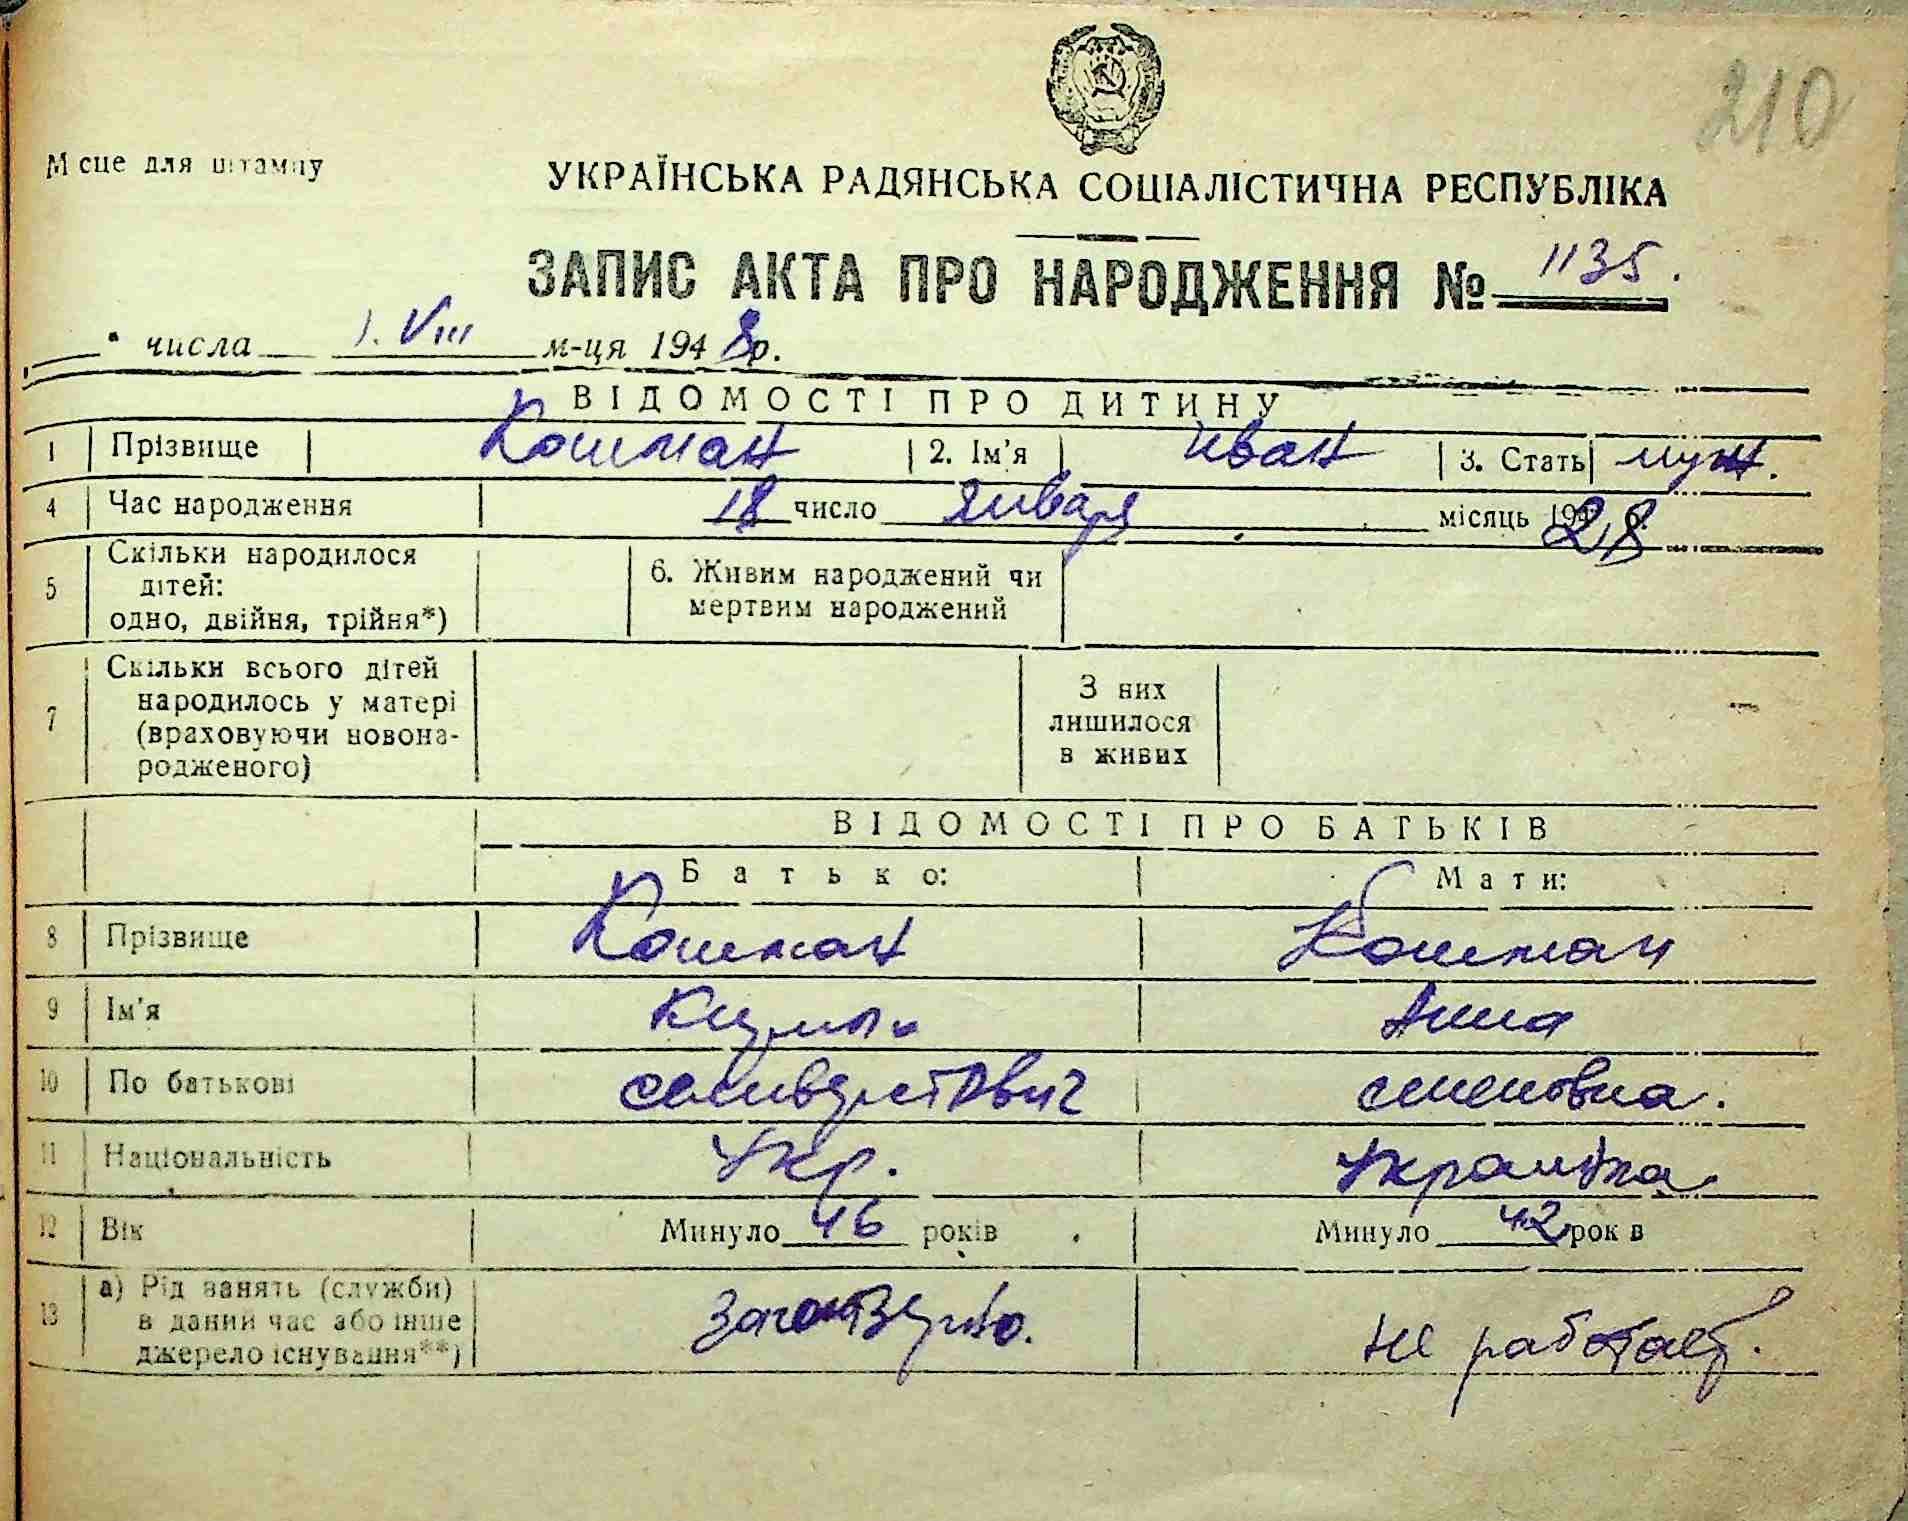 210
Місце для штампу
УКРАЇНСЬКА РАДЯНСЬКА СОЦІАЛІСТИЧНА РЕСПУБЛІКА
ЗАПИС АКТА ПРО НАРОДЖЕННЯ № 1135.
" числа 1. VIII м-ця 1948р.
ВІДОМОСТІ ПРО ДИТИНУ
1 Прізвище Кошман 2. Ім'я Иван 3. Стать муж.
4 Час народження 18 число Января місяць 1928
5 Скільки народилося дітей: одно, двійня, трійня*) 6. Живим народжений чи мертвим народжений
7 Скільки всього дітей народилось у матері (враховуючи новона-родженого) З них лишилося в живих
ВІДОМОСТІ ПРО БАТЬКІВ
Батько: Мати:
8 Прізвище Кошман Кошман
9 Ім'я Кузьма Анна
10 По батькові Селиверстович семеновна.
11 Національність Укр. Украинка
12 Вік Минуло 46 років Минуло 42 років
13 а) Рід занять (служби) в даний час або інше джерело існування**) Заготзерно. не работает.